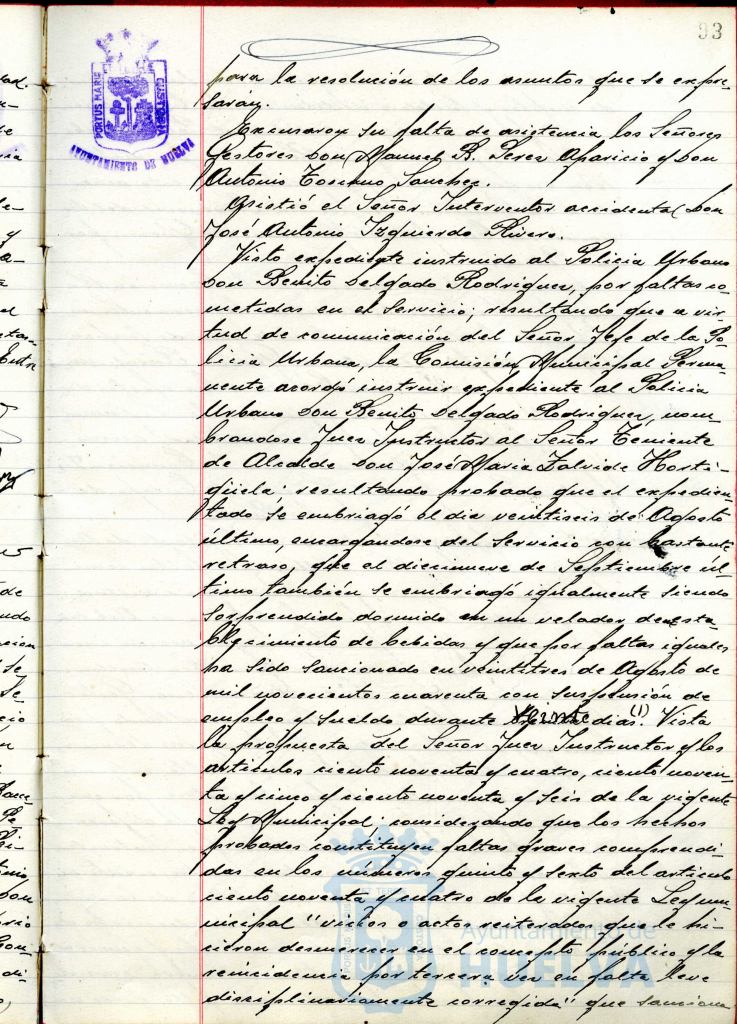 93
PORTUS MARIS CUSTODIA
AYUNTAMIENTO DE HUELVA
para la resolución de los asuntos que se expre-
sarán.
Excusaron su falta de asistencia los Señores
Gestores Don Manuel B. Perez Aparicio y Don
Antonio Toscano Sanchez.
Asistió el Señor Interventor accidental Don
José Antonio Izquierdo Rivero.
Visto expediente instruido al Policia Urbano
Don Benito Delgado Rodriguez, por faltas co-
metidas en el Servicio; resultando que a vir-
tud de comunicación del Señor Jefe de la Po-
licia Urbana, la Comisión Municipal Perma-
nente acordó instruir expediente al Policia
Urbano Don Benito Delgado Rodriguez, nom-
brandose Juez Instructor al Señor Teniente
de Alcalde Don José Maria Zalvide Horti-
güela; resultando probado que el expedien-
tado se embriagó el dia veintiseis de Agosto
último, encargandose del Servicio con bastante
retraso, que el diecinueve de Septiembre úl-
timo también se embriagó igualmente siendo
sorprendido dormido en un velador de esta-
blecimiento de bebidas y que por faltas iguales
ha sido sancionado en veintitres de Agosto de
mil novecientos cuarenta con suspensión de
empleo y sueldo durante veinte dias (1). Vista
la propuesta del Señor Juez Instructor y los
articulos ciento noventa y cuatro, ciento noven-
ta y cinco y ciento noventa y seis de la vigente
Ley Municipal; considerando que los hechos
probados constituyen faltas graves comprendi-
das en los números quinto y sexto del articulo
ciento noventa y cuatro de la vigente Ley mu-
nicipal "vicios o actos reiterados que le hi-
cieron desmerecer en el concepto público y la
reincidencia por tercera vez en falta leve
disciplinariamente corregida" que sanciona
Ayuntamiento de
HUELVA